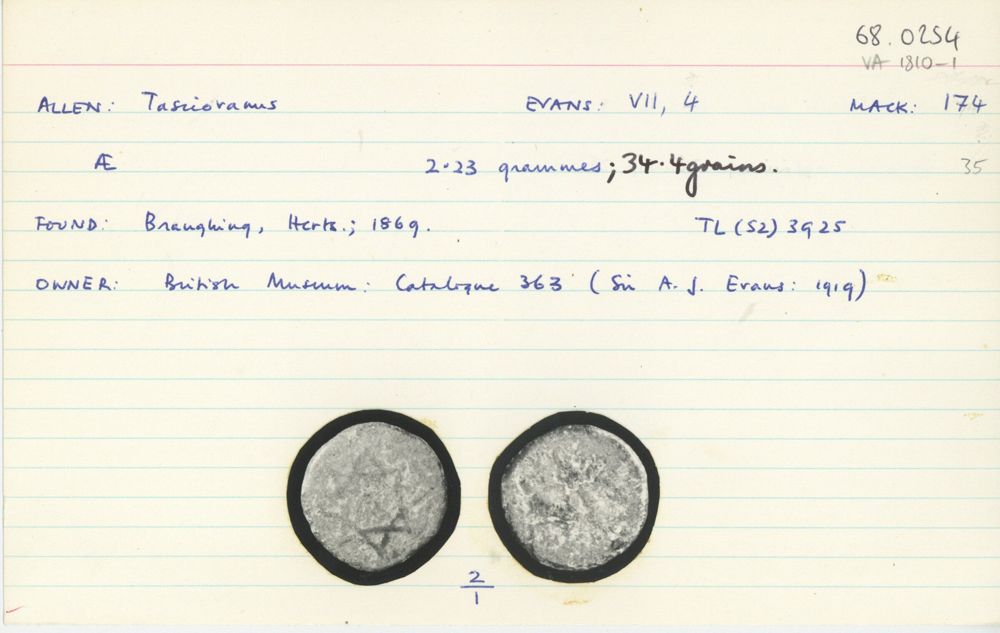 68.0254
VA 1810-1
ALLEN: Tasciovanus EVANS: VII, 4 MACK: 174
Æ 2.23 grammes; 34.4 grains. 35
FOUND: Braughing, Herts.; 1869. TL (52) 3925
OWNER: British Museum: Catalogue 363 (Sir A. J. Evans: 1919)
2
1